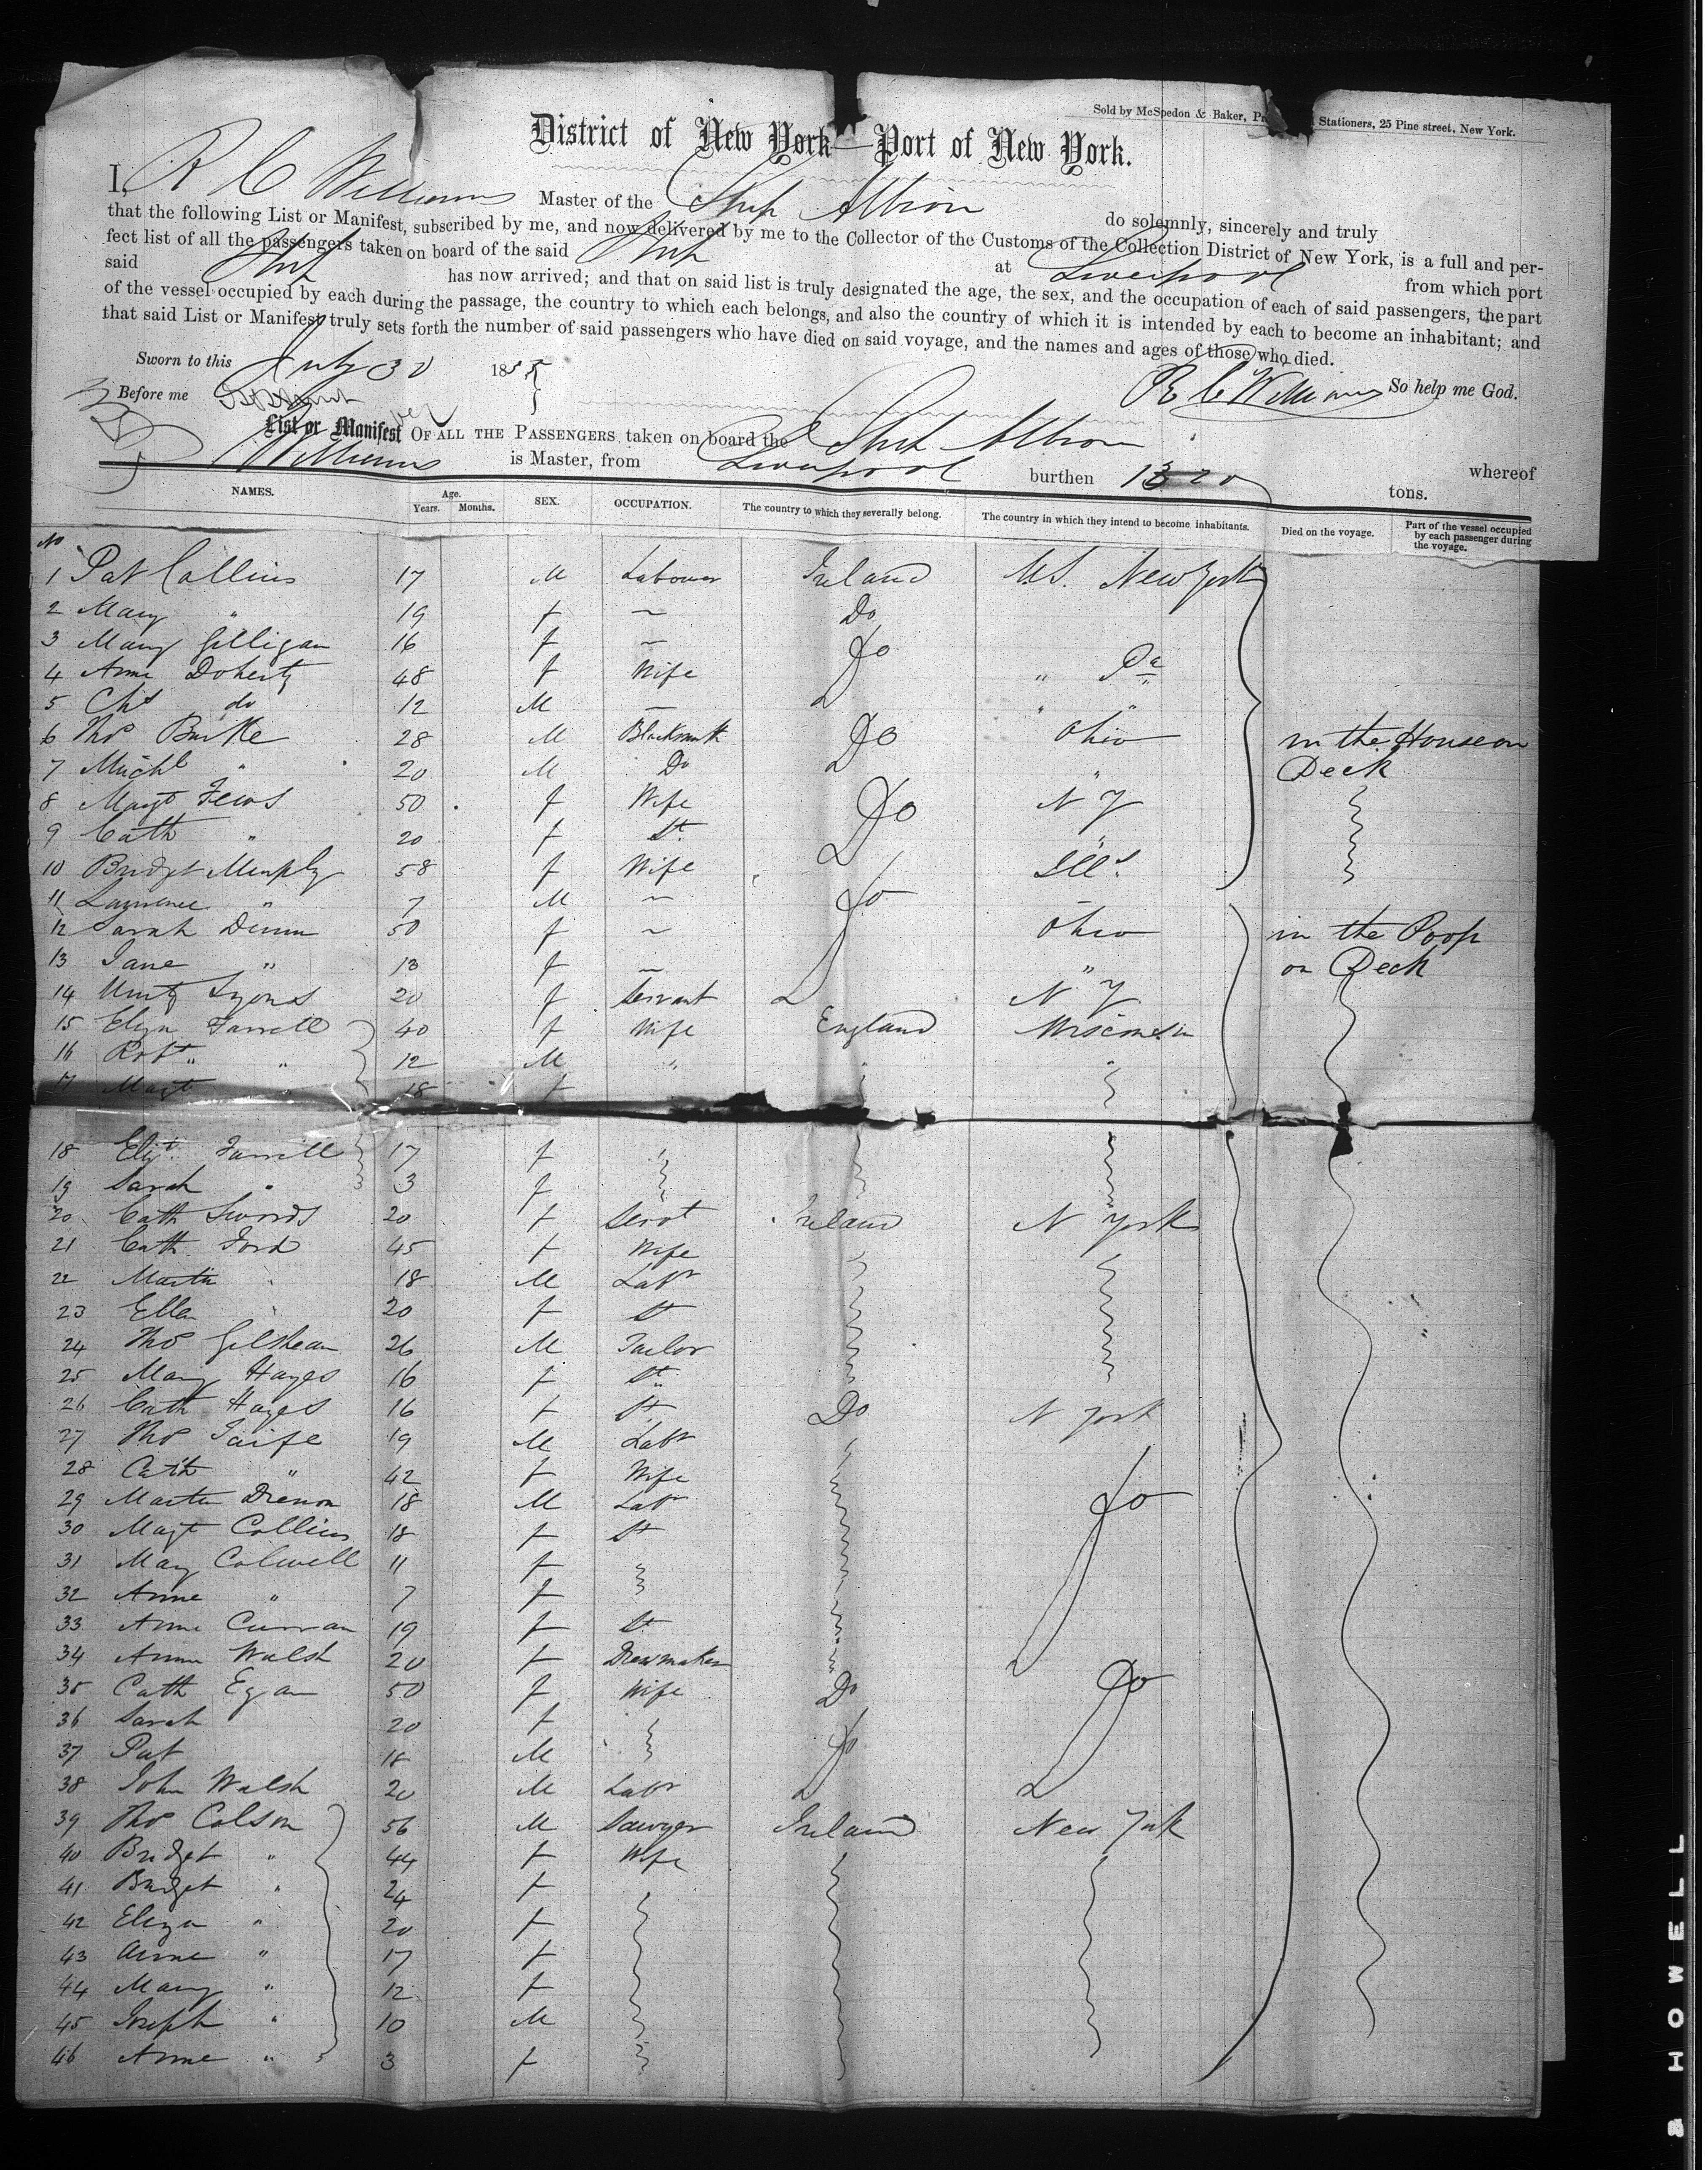 Sold by McSpedon & Baker, Pr Stationers, 25 Pine street, New York.
District of New York—Port of New York.
I, R C Williams Master of the Ship Albion do solemnly, sincerely and truly
that the following List or Manifest, subscribed by me, and now delivered by me to the Collector of the Customs of the Collection District of New York, is a full and per-
fect list of all the passengers taken on board of the said Ship at Liverpool from which port
said Ship has now arrived; and that on said list is truly designated the age, the sex, and the occupation of each of said passengers, the part
of the vessel occupied by each during the passage, the country to which each belongs, and also the country of which it is intended by each to become an inhabitant; and
that said List or Manifest truly sets forth the number of said passengers who have died on said voyage, and the names and ages of those who died.
Sworn to this July 30 1855 So help me God.
Before me R C Williams
List or Manifest OF ALL THE PASSENGERS taken on board the Ship Albion whereof
Williams is Master, from Liverpool burthen 1320 tons.
NAMES. Age. Years. Months. SEX. OCCUPATION. The country to which they severally belong. The country in which they intend to become inhabitants. Died on the voyage. Part of the vessel occupied by each passenger during the voyage.
No
1 Pat Collins 17 M Labourer Ireland U.S. New York
2 Mary " 19 f ~ Do
3 Mary Gilligan 16 f ~ Do
4 Anne Doherty 48 f Wife " Pa
5 Chs do 12 M — " "
6 Thos Burke 28 M Blacksmith Do Ohio in the House on
7 Michl " 20 M Do " Deck
8 Margt Fews 50 f Wife Do N Y
9 Cath " 20 f St "
10 Bridget Murphy 58 f Wife Ills
11 Lawrence " 7 M ~ Do
12 Sarah Dunn 50 f ~ Ohio in the Poop
13 Jane " 13 f ~ " on Deck
14 Lyons 20 f Servant N Y
15 Eliza Farrell 40 f Wife England Wisconsin
16 Robt " 12 M " " "
17 Margt " 18 f
18 Elizt Farrell 17 f
19 Sarah " 3 f
20 Cath Swords 20 f Servt Ireland N York
21 Cath Ford 45 f Wife
22 Martin " 18 M Labr
23 Ellen " 20 f St
24 Thos Gilshean 26 M Tailor
25 Mary Hayes 16 f St
26 Cath Hayes 16 f St Do N York
27 Thos Taife 19 M Labr
28 Cath " 42 f Wife
29 Martin Drenon 18 M Labr Do
30 Magt Collins 18 f St
31 Mary Colwell 11 f
32 Anne " 7 f
33 Anne Curran 19 f St
34 Anne Walsh 20 f Dressmaker
35 Cath Egan 50 f Wife Do Do
36 Sarah 20 f
37 Pat 18 M Do
38 John Walsh 20 M Labr
39 Thos Colson 56 M Sawyer Ireland New York
40 Bridget " 44 f Wife
41 Bridget " 24 f
42 Eliza " 20 f
43 Anne " 17 f
44 Mary " 12 f
45 Joseph " 10 M
46 Anne " 3 f
& HOWELL